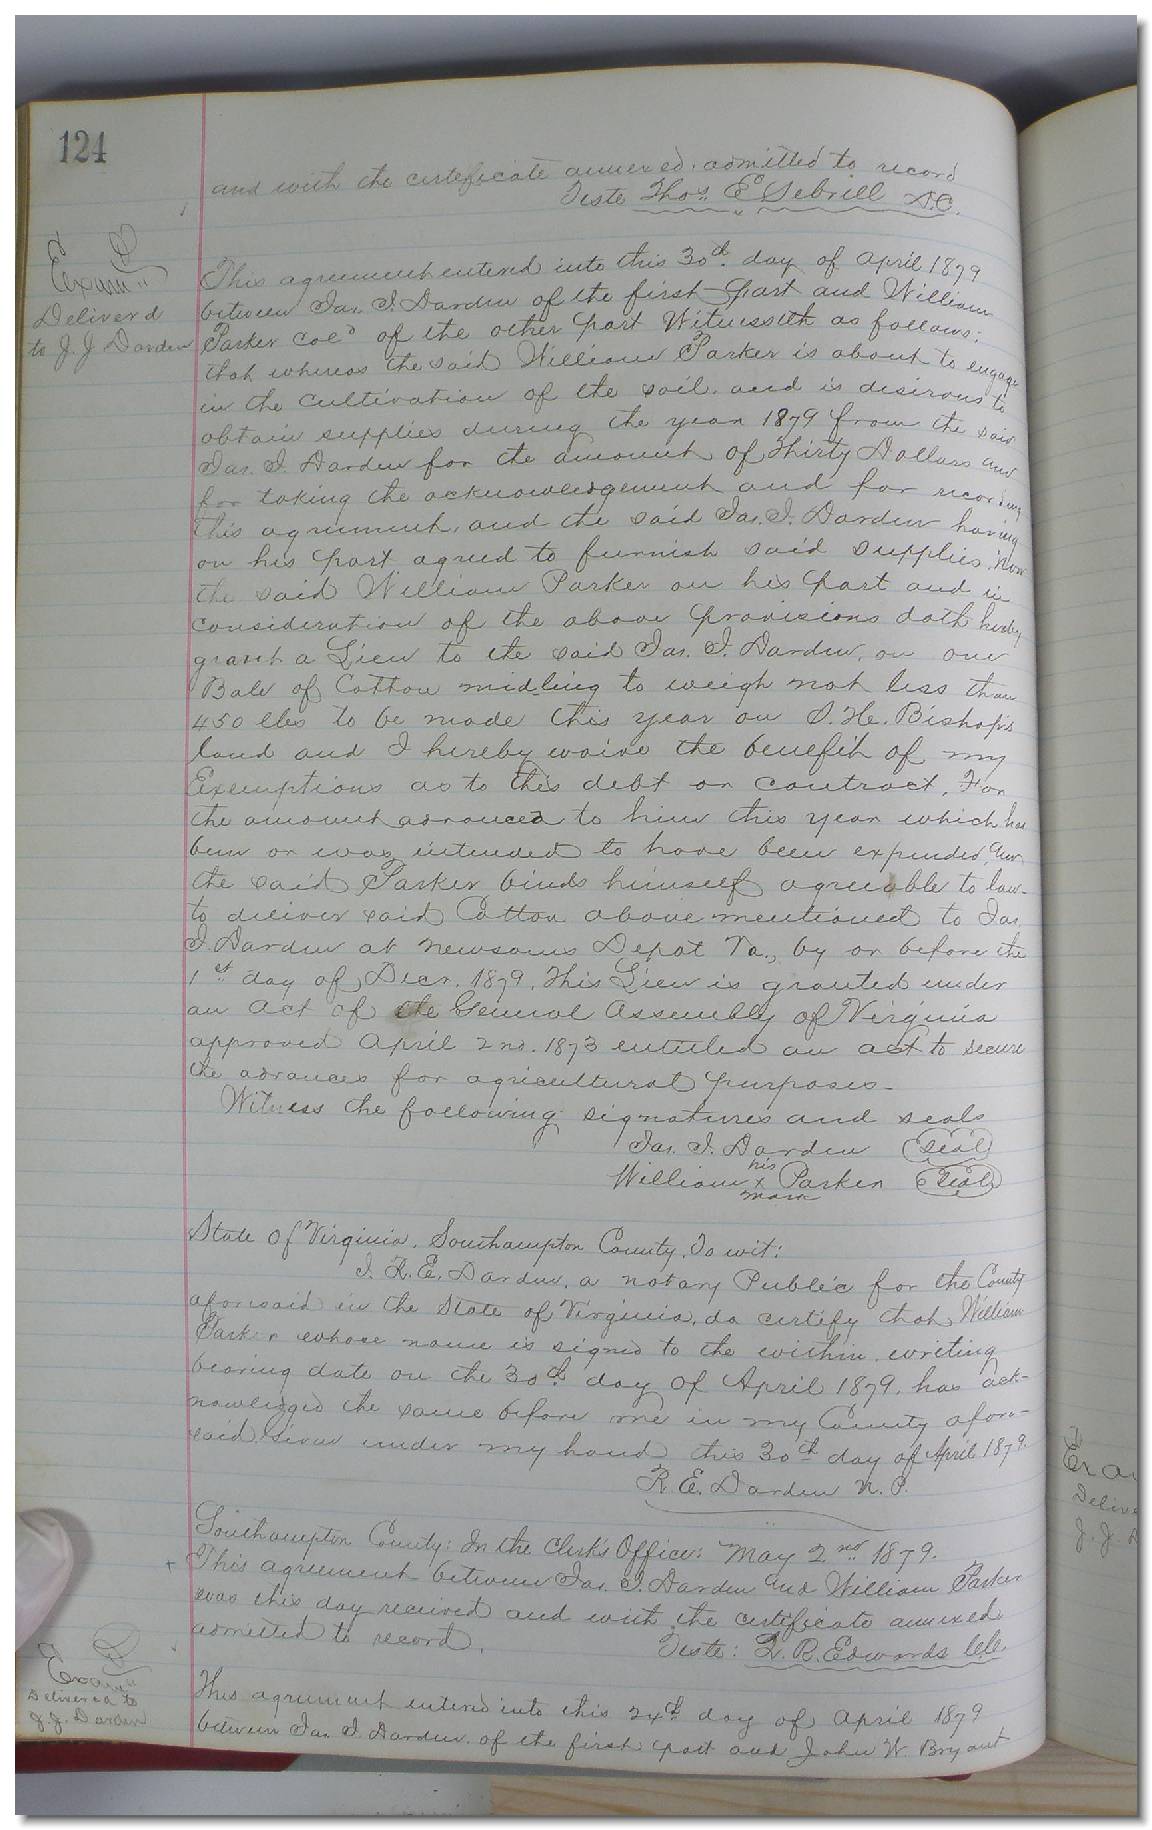 124
and with the certificate annexed admitted to record
Teste Thos. E Sebrill D.C.
Exam.d
Deliverd
to J. J Darden
This agreement entered into this 30th day of April 1879
between Jas. J. Darden of the first part and William
Parker Col'd of the other part Witnesseth as follows:
that whereas the said William Parker is about to engage
in the cultivation of the soil. and is desirous to
obtain supplies during the year 1879 from the said
Jas. J. Darden for the amount of Thirty Dollars and
for taking the acknowledgement and for recording
this agreement, and the said Jas. J. Darden having
on his part agreed to furnish said supplies. Now
the said William Parker on his part and in
consideration of the above provisions doth hereby
grant a Lien to the said Jas. J. Darden, on one
Bale of Cotton midling to weigh not less than
450 lbs to be made this year on S. H. Bishop's
land and I hereby waive the benefit of my
Exemptions as to this debt or contract. For
the amount advanced to him this year which has
been or was intended to have been expended, and
the said Parker binds himself agreeable to law
to deliver said Cotton above mentioned to Jas.
J. Darden at Newsoms Depot Va., by or before the
1st day of Decr. 1879. This Lien is granted under
an Act of the General Assembly of Virginia
approved April 2nd. 1873 entitled an act to secure
the advances for agricultural purposes-
Witness the following signatures and seals
Jas. J. Darden (Seal)
his
William x Parker (Seal)
mark
State of Virginia, Southampton County, To wit:
I. R. E. Darden, a notary Public for the County
aforesaid in the State of Virginia, do certify that William
Parker whose name is signed to the within writing
bearing date on the 30th day of April 1879. has ack-
nowledged the same before me in my County afore-
said. Given under my hand this 30th day of April 1879.
R. E. Darden N. P.
Southampton County: In the Clerk's Office: May 2nd 1879.
This agreement between Jas. J. Darden and William Parker
was this day received and with the certificate annexed
admitted to record.
Teste: L. R. Edwards Clk.
Exam.d
Delivered to
J. J. Darden
This agreement entered into this 24th day of April 1879
between Jas. J. Darden of the first part and John W. Bryant
Exa
Delive
J. J. D